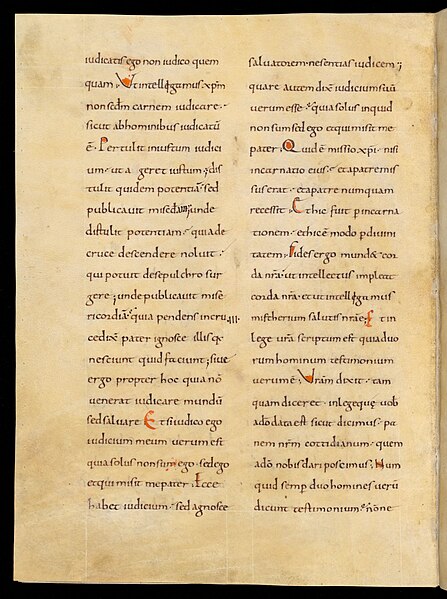 iudicatis ego non iudico quem
quam Ut intelligamus xpm
non scdm carnem iudicare
sicut ab hominibus iudicatu
e. Pertulit iniustum iudici
um. ut ageret iustum; dis
tulit quidem potentia sed
publicavit miscdam; unde
distulit potentiam. quia de
cruce descendere noluit.
qui potuit de sepulchro sur
gere; unde publicavit mise
ricordia. quia pendens in cru
ce dixe pater ignosce illis qe
nesciunt quid faciunt; sive
ergo propter hoc quia no
venerat iudicare mundu
sed salvare Et si iudico ego
iudicium meum verum est
quia solus non sum ego. sed ego
et qui misit me pater. Ecce
habet iudicium. sed agnosce
salvatorem. ne sentias iudicem;
quare autem dix iudicium suu
verum esse. quia solus inquid
non sum sed ego et qui misit me
pater. Quid e missio xpi. nisi
incarnatio eius. et a patre mis
sus erat. et a patre numquam
recessit. Et hic fuit p incarna
tionem. et hic e modo p divini
tatem. Fides ergo mundet cor
da nra. ut intellectus impleat
corda nra. et ut intelligamus
misterium salutis nrae. Et in
lege vra scriptum est quia duo
rum hominum testimonium
verum e. Vram dixit. tam
quam diceret. in lege que vob
a do data est sicut dicimus. pa
nem nrm cottidianum. quem
a do nobis dari poscimus. Num
quid semp duo homines veru
dicunt testimonium. none